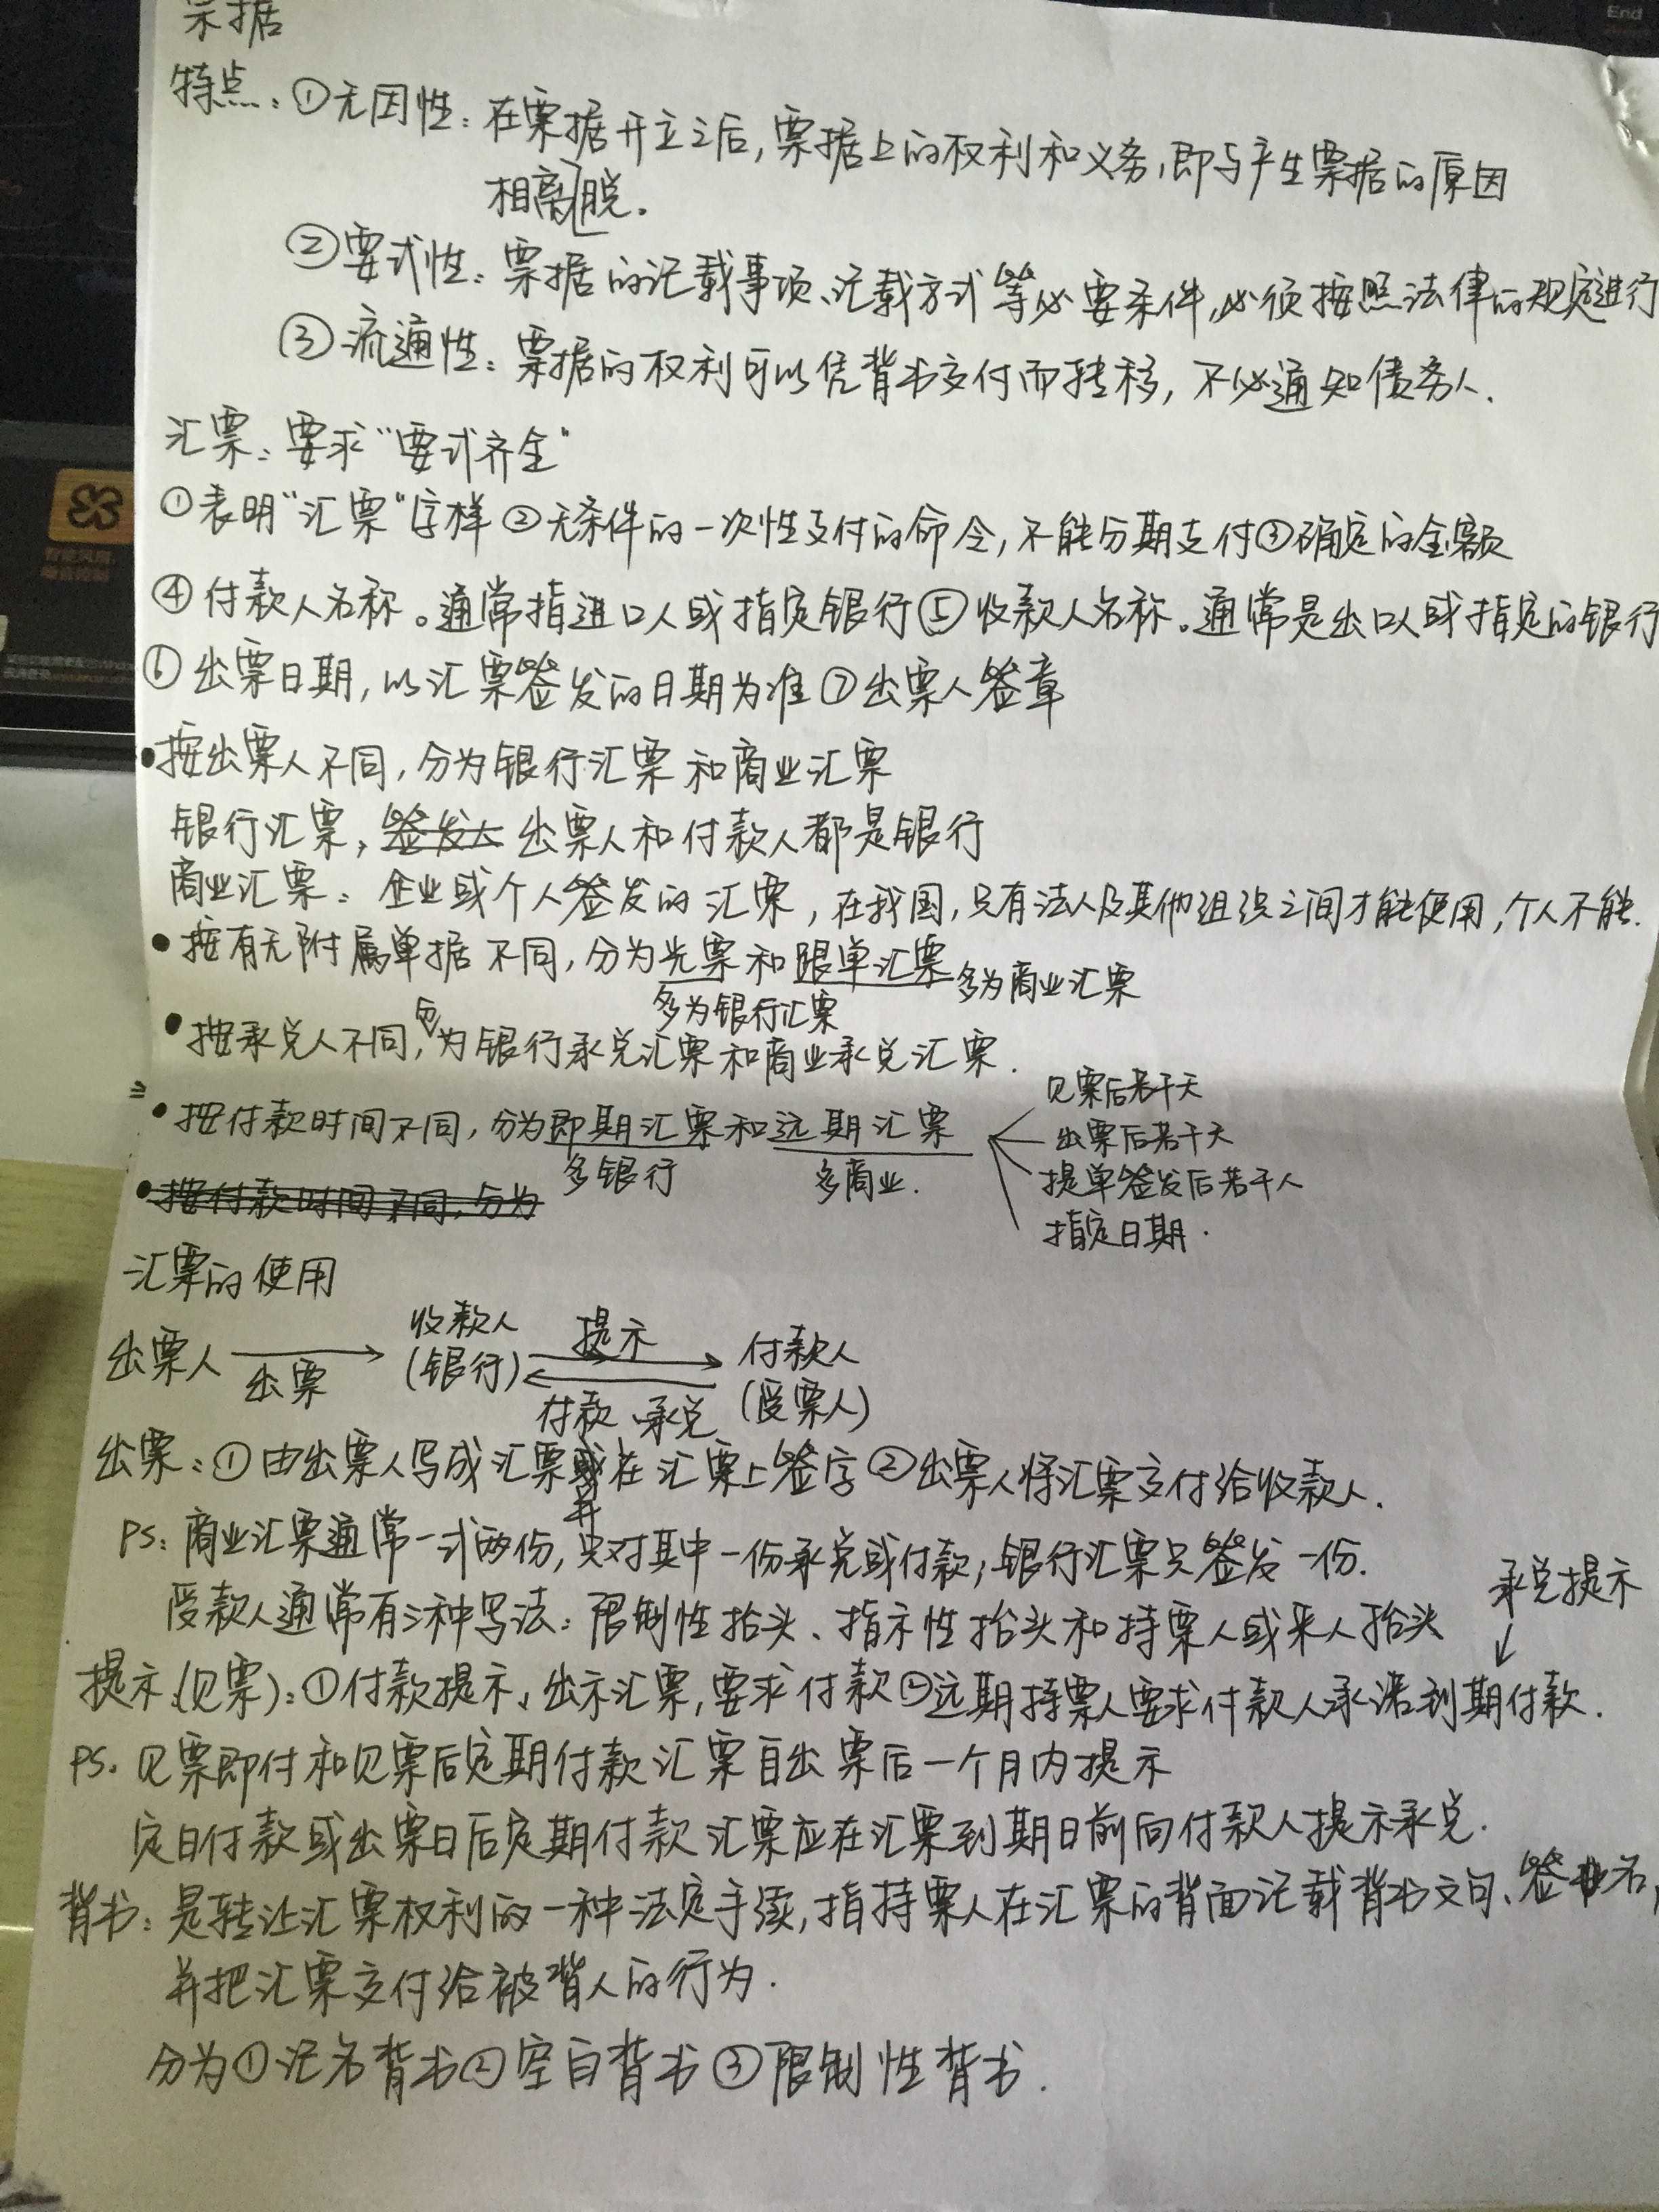 票据
特点：①无因性：在票据开立之后，票据上的权利和义务，即与产生票据的原因
相离脱．
②要式性：票据的记载事项、记载方式等必要条件，必须按照法律的规定进行
③流通性：票据的权利可以凭背书交付而转移，不必通知债务人．
汇票：要求“要式齐全”
①表明“汇票”字样②无条件的一次性支付的命令，不能分期支付③确定的金额
④付款人名称。通常指进口人或指定银行⑤收款人名称。通常是出口人或指定的银行
⑥出票日期，以汇票签发的日期为准⑦出票人签章
•按出票人不同，分为银行汇票和商业汇票
银行汇票，出票人和付款人都是银行
商业汇票：企业或个人签发的汇票，在我国，只有法人及其他组织之间才能使用，个人不能．
•按有无附属单据不同，分为光票和跟单汇票 多为商业汇票
多为银行汇票
•按承兑人不同，分为银行承兑汇票和商业承兑汇票．
•按付款时间不同，分为即期汇票和远期汇票
多银行 多商业．
见票后若干天
出票后若干天
提单签发后若干人
指定日期．
•按付款时间不同，分为
汇票的使用
出票人 出票 收款人（银行） 提示 付款人（受票人）
付款、承兑
出票：①由出票人写成汇票并在汇票上签字②出票人将汇票交付给收款人．
PS：商业汇票通常一式两份，只对其中一份承兑或付款；银行汇票只签发一份．
受款人通常有三种写法：限制性抬头、指示性抬头和持票人或来人抬头
承兑提示
提示（见票）：①付款提示、出示汇票，要求付款②远期持票人要求付款人承诺到期付款．
PS．见票即付和见票后定期付款汇票自出票后一个月内提示
定日付款或出票日后定期付款汇票应在汇票到期日前向付款人提示承兑．
背书：是转让汇票权利的一种法定手续，指持票人在汇票的背面记载背书文句、签名，
并把汇票交付给被背人的行为．
分为①记名背书②空白背书③限制性背书．
End